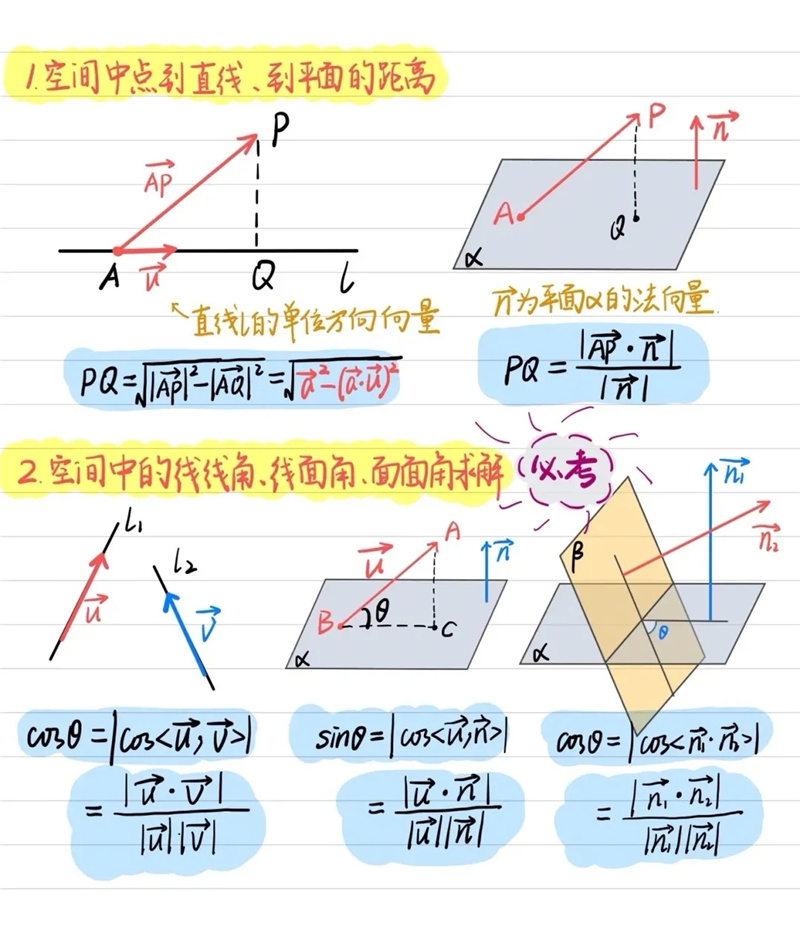 1.空间中点到直线、到平面的距离
P
AP→
A u→ Q l
↖直线l的单位方向向量
PQ=√(|AP→|²-|AQ→|²)=√(a→²-(a→·u→)²)
P
n→
A
Q
α
n→为平面α的法向量.
PQ=|AP→·n→|/|n→|
2.空间中的线线角、线面角、面面角求解
必考
l₁
l₂
u→
v→
cosθ=|cos<u→,v→>|
=|u→·v→|/|u→||v→|
A
u→
n→
B θ C
α
sinθ=|cos<u→,n→>|
=|u→·n→|/|u→||n→|
n₁→
n₂→
β
θ
α
cosθ=|cos<n₁→·n₂→>|
=|n₁→·n₂→|/|n₁→||n₂→|